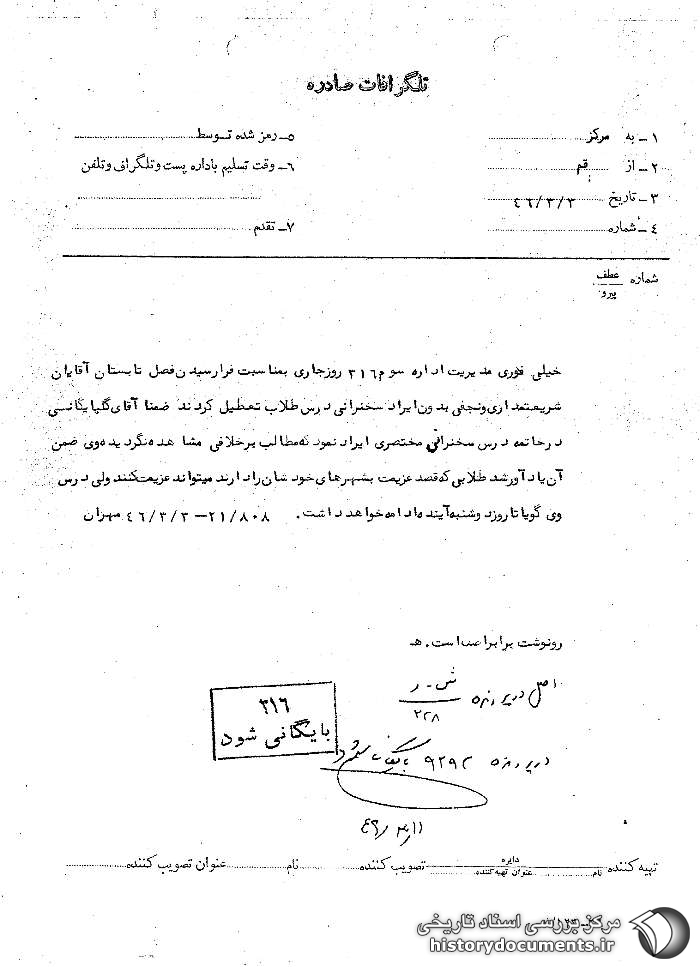 تلگرافات صادره
۱ـ به مرکز
۵ـ رمز شده توسط
۲ـ از قم
۶ـ وقت تسلیم باداره پست وتلگراف وتلفن
۳ـ تاریخ ۴۶/۳/۳
۴ـ شماره
۷ـ تقدم
شماره عطف
پیرو
خیلی فوری مدیریت اداره سوم ۳۱۶ روزجاری بمناسبت فرارسیدن فصل تابستان آقایان
شریعتمداری ونجفی بدون ایراد سخنرانی درس طلاب تعطیل کردند ضمنا آقای گلپایگانی
درخاتمه درس سخنرانی مختصری ایراد نمود که مطالب برخلافی مشاهده نگردیده وی ضمن
آن یادآورشد طلابی که قصد عزیمت بشهرهای خودشان را دارند میتواند عزیمت کنند ولی درس
وی گویا تا روز دوشنبه آینده ادامه خواهد داشت. ۲۱/۸۰۸ـ ۴۶/۳/۳ مهران
رونوشت برابر اصل است. هـ
اصل در پرونده ش ـ ر
۲۲۸
۳۱۶
بایگانی شود
در پرونده ۹۲۹۲ بایگانی شود
۴۶/۳/۱۱
تهیه کننده دایره تصویب کننده نام عنوان تصویب کننده
نام عنوان تهیه کننده
مرکز بررسی اسناد تاریخی
historydocuments.ir